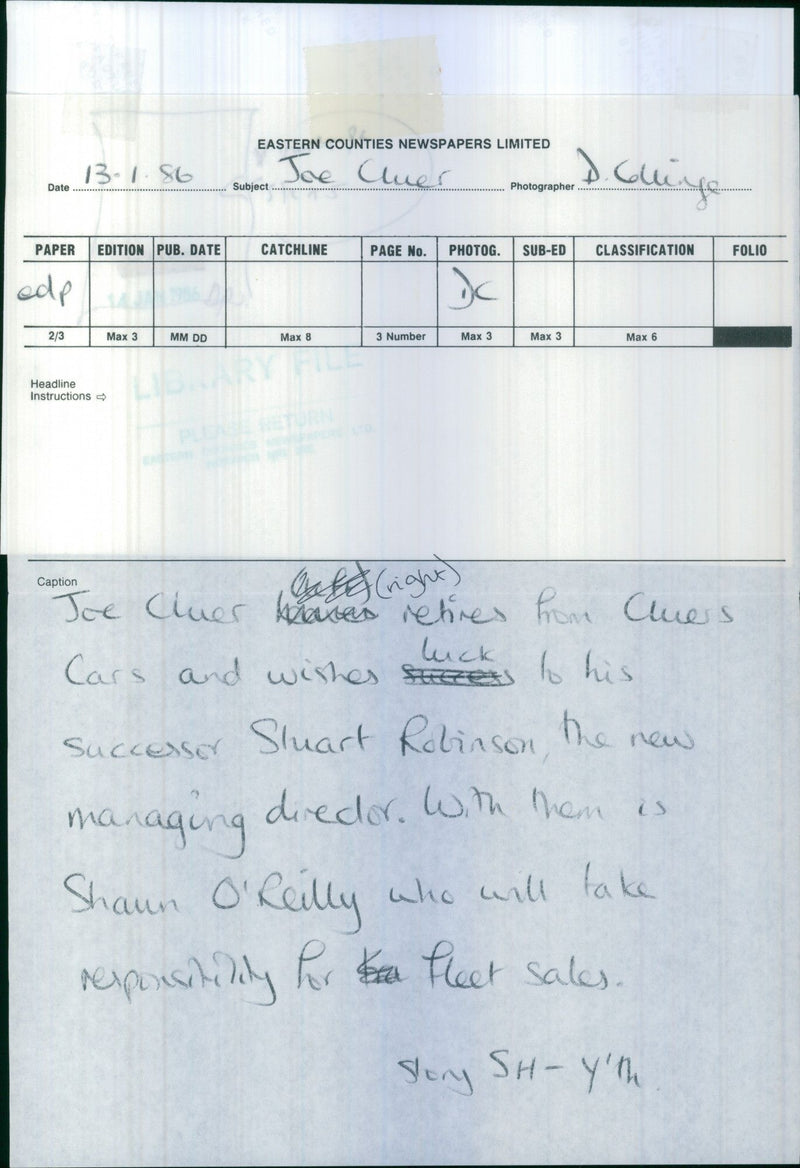 EASTERN COUNTIES NEWSPAPERS LIMITED
Date 13-1-86 Subject Joe Cluer Photographer D. Collinge
PAPER EDITION PUB. DATE CATCHLINE PAGE No. PHOTOG. SUB-ED CLASSIFICATION FOLIO
edp DC
14 JAN 1986
2/3 Max 3 MM DD Max 8 3 Number Max 3 Max 3 Max 6
Headline
Instructions ⇨
LIBRARY FILE
PLEASE RETURN
EASTERN COUNTIES NEWSPAPERS LTD.
Caption
(right)
Joe Cluer retires from Cluers
Cars and wishes luck to his
successor Stuart Robinson, the new
managing director. With them is
Shaun O'Reilly who will take
responsibility for fleet sales.
Story SH - Y'th